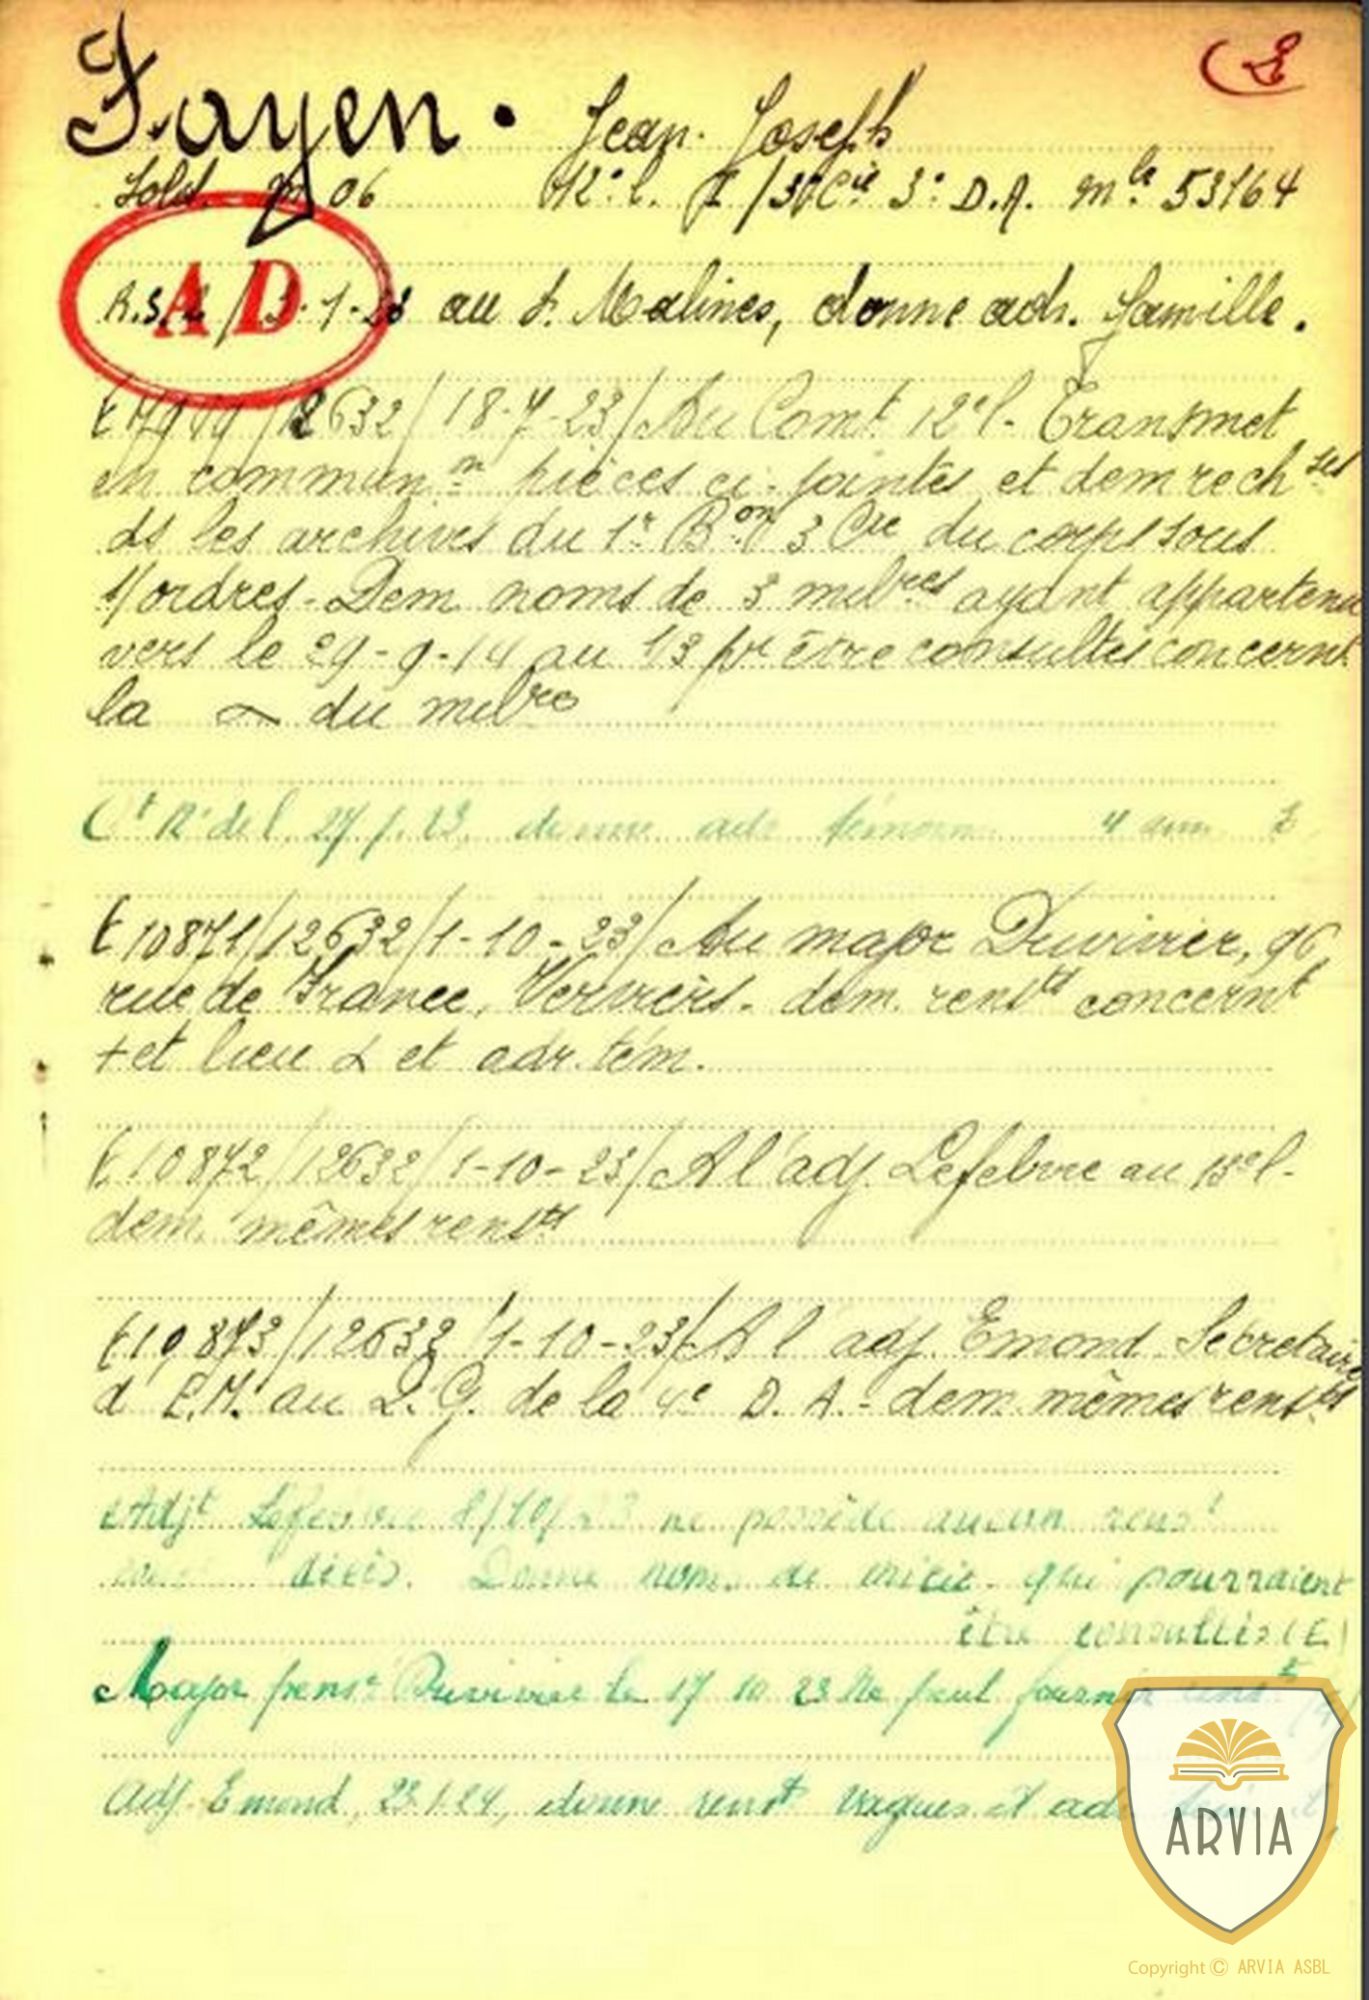 Fayen. Jean. Joseph
Sold. M 06 12e l. I/3e Cie 3e D.A. Mle 53164
A D
au d. Malines, donne adr. famille.
/12632/18-7-23/ Au Comt 12e l. Transmet
en communon pièces ci-jointes et dem rech ses
ds les archives du 1r Bon 3 Cie du corps sous
s/ordres. Dem noms de 3 milbres ayant appartenu
vers le 29-9-14 au 13 pr être consultés concernt
la du milre
Ct 12e de l 27.7.23, donne adr témoin 4 ann E
E 10871/12632/1-10-23/ Au major Duvivier, 96,
rue de France, Verviers. dem. rensts concernt
+ et lieu et adr. tém.
E 10872/12632/1-10-23/ A l'adj. Lefebvre au 13e l.
dem. mêmes rensts
E 10873/12632/1-10-23/ A l'adj. Emond Secrétaire
d'E.M. au Q.G. de la 4e D.A. - dem. mêmes rensts
Adjt Lefebvre ne possède aucun renst
décès. Donne noms de qui pourraient
être consultés (E)
Major pensé Duvivier le 17 10 23 Ne peut fournir renst
Adj. Emond, 23.1.24, donne renst vagues et adr
ARVIA
Copyright © ARVIA ASBL